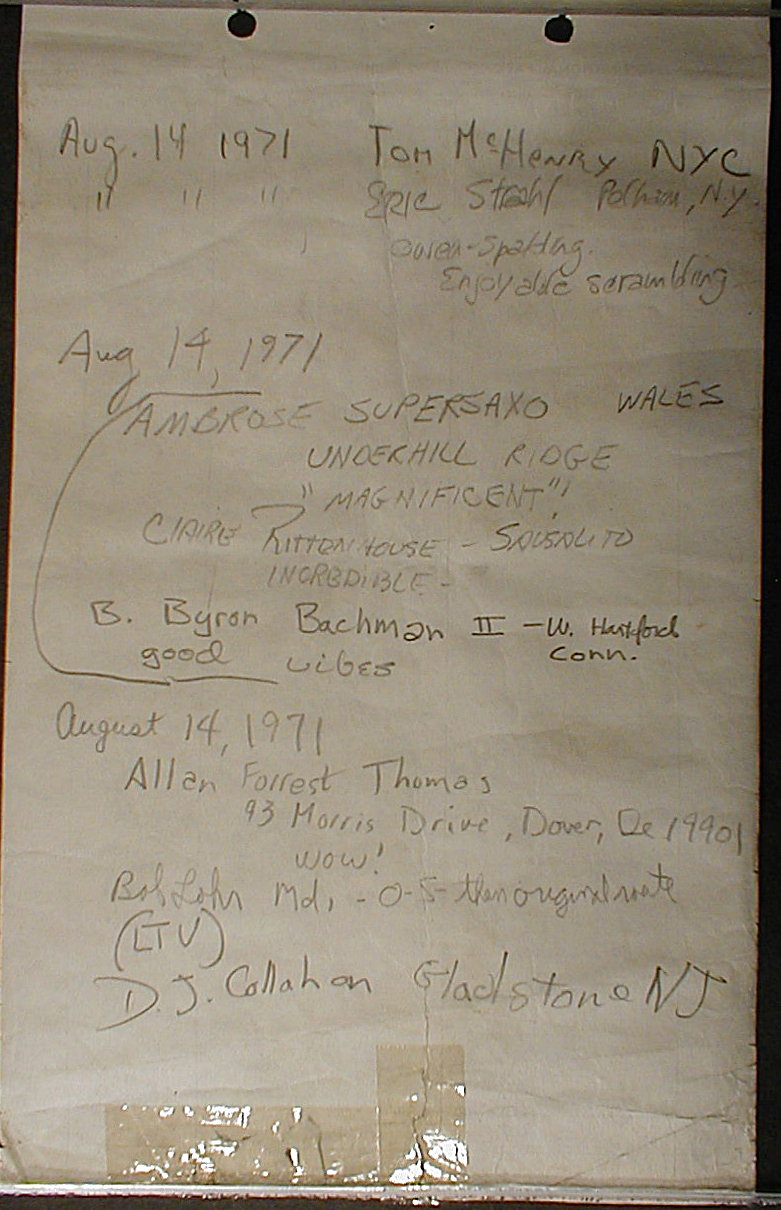 Aug. 14 1971 Tom McHenry NYC
" " " Eric Strahl Pelham, N.Y.
Owen-Spalding.
Enjoyable scrambling
Aug 14, 1971
AMBROSE SUPERSAXO WALES
UNDERHILL RIDGE
"MAGNIFICENT"!
CLAIRE RITTENHOUSE - SAUSALITO
INCREDIBLE -
B. Byron Bachman II - W. Hartford
good vibes Conn.
August 14, 1971
Allan Forrest Thomas
93 Morris Drive, Dover, De 19901
WOW!
Bob Lohr Md, - O-S- then original route
(LTV)
D.J. Callahan Gladstone NJ